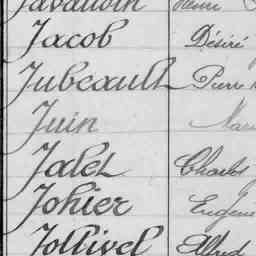 Javaudin Henri
Jacob Désiré
Jubeault Pierre
Juin
Jalet Charles
Johier Eugène
Jollivel Alfred